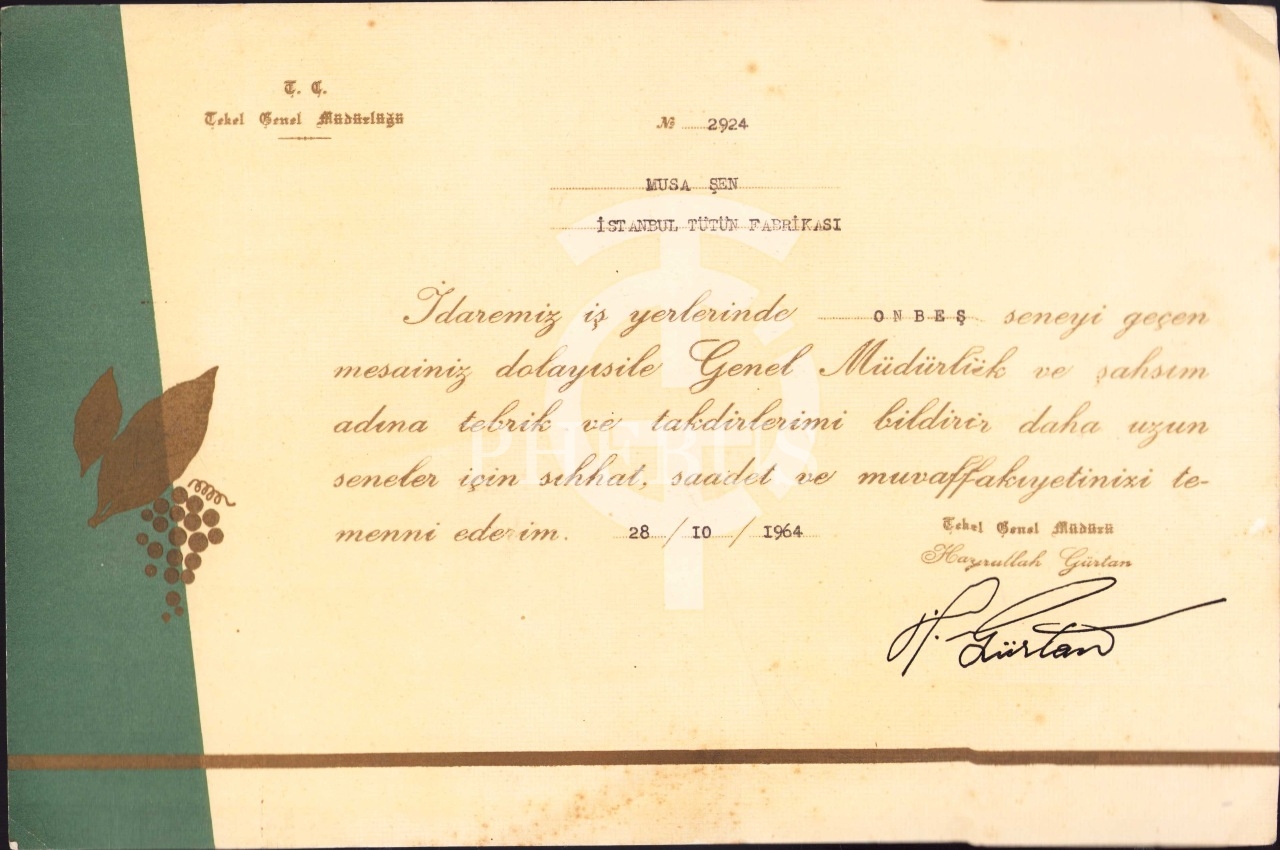 T. C.
Tekel Genel Müdürlüğü
№ 2924
MUSA ŞEN
İSTANBUL TÜTÜN FABRİKASI
İdaremiz iş yerlerinde ONBEŞ seneyi geçen
mesainiz dolayısile Genel Müdürlük ve şahsım
adına tebrik ve takdirlerimi bildirir daha uzun
seneler için sıhhat, saadet ve muvaffakıyetinizi te-
menni ederim. 28 / 10 / 1964
Tekel Genel Müdürü
Hayrullah Gürtan
H. Gürtan
PHEBUS